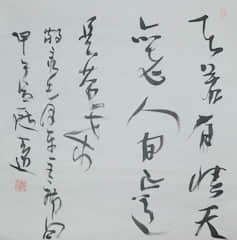 天若有情天
亦老人间正道
是沧桑
敬录毛泽东主席句
甲午